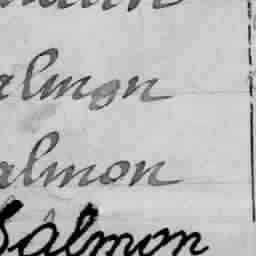 almon
almon
Salmon